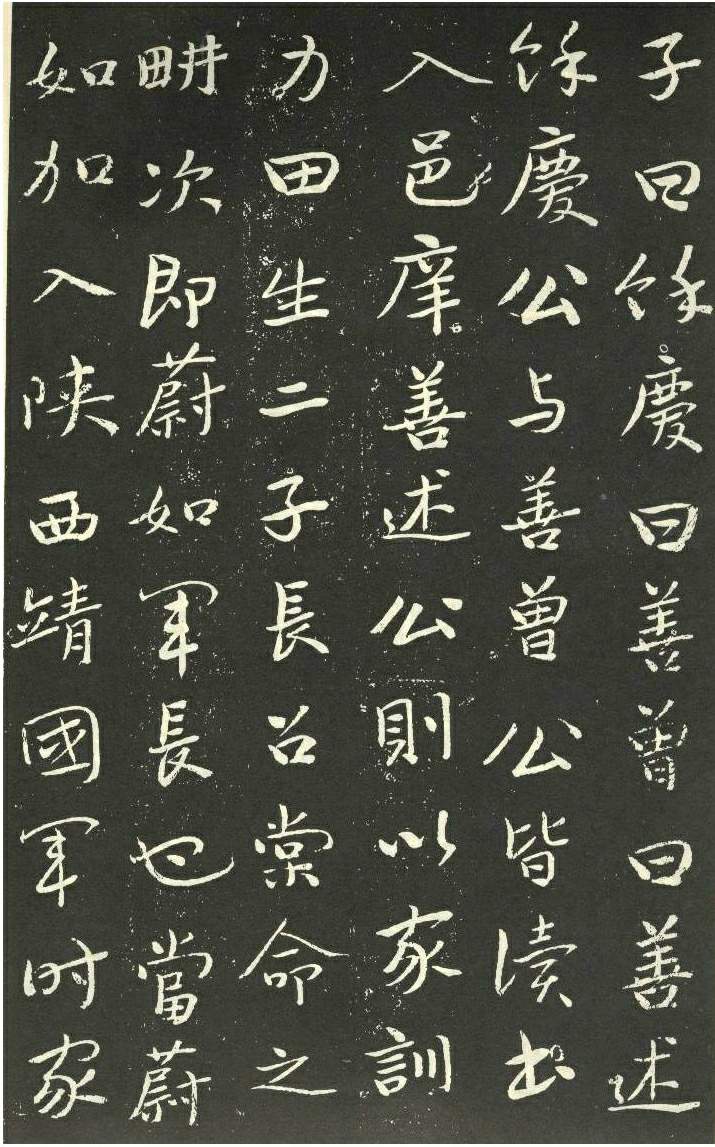 子曰餘慶曰善曾曰善述
餘慶公与善曾公皆讀书
入邑庠善述公則以家訓
力田生二子長召棠命之
畊次即蔚如軍長也當蔚
如加入陝西靖國軍时家